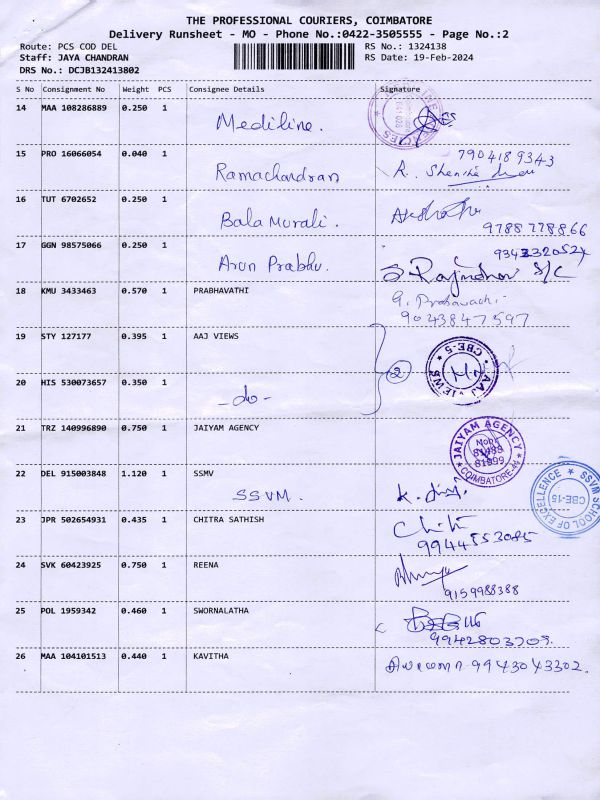 THE PROFESSIONAL COURIERS, COIMBATORE
Delivery Runsheet - MO - Phone No.:0422-3505555 - Page No.:2
Route: PCS COD DEL
RS No.: 1324138
Staff: JAYA CHANDRAN
RS Date: 19-Feb-2024
DRS No.: DCJB132413802
S No Consignment No Weight PCS Consignee Details Signature
14 MAA 108286889 0.250 1 Mediline.
15 PRO 16066054 0.040 1 Ramachandran 7904189343
16 TUT 6702652 0.250 1 Bala Murali. 9788778866
17 GGN 98575066 0.250 1 Arun Prabhu.
18 KMU 3433463 0.570 1 PRABHAVATHI
9043847597
19 STY 127177 0.395 1 AAJ VIEWS
2
AAJ VIEWS CBE-5
20 HIS 530073657 0.350 1 -do-
21 TRZ 140996890 0.750 1 JAIYAM AGENCY
JAIYAM AGENCY
COIMBATORE-44
22 DEL 915003848 1.120 1 SSMV
SSVM.
SSVM SCHOOL OF EXCELLENCE
CBE-15
23 JPR 502654931 0.435 1 CHITRA SATHISH
9944553085
24 SVK 60423925 0.750 1 REENA
9159988388
25 POL 1959342 0.460 1 SWORNALATHA
9942803709.
26 MAA 104101513 0.440 1 KAVITHA 9943043302.